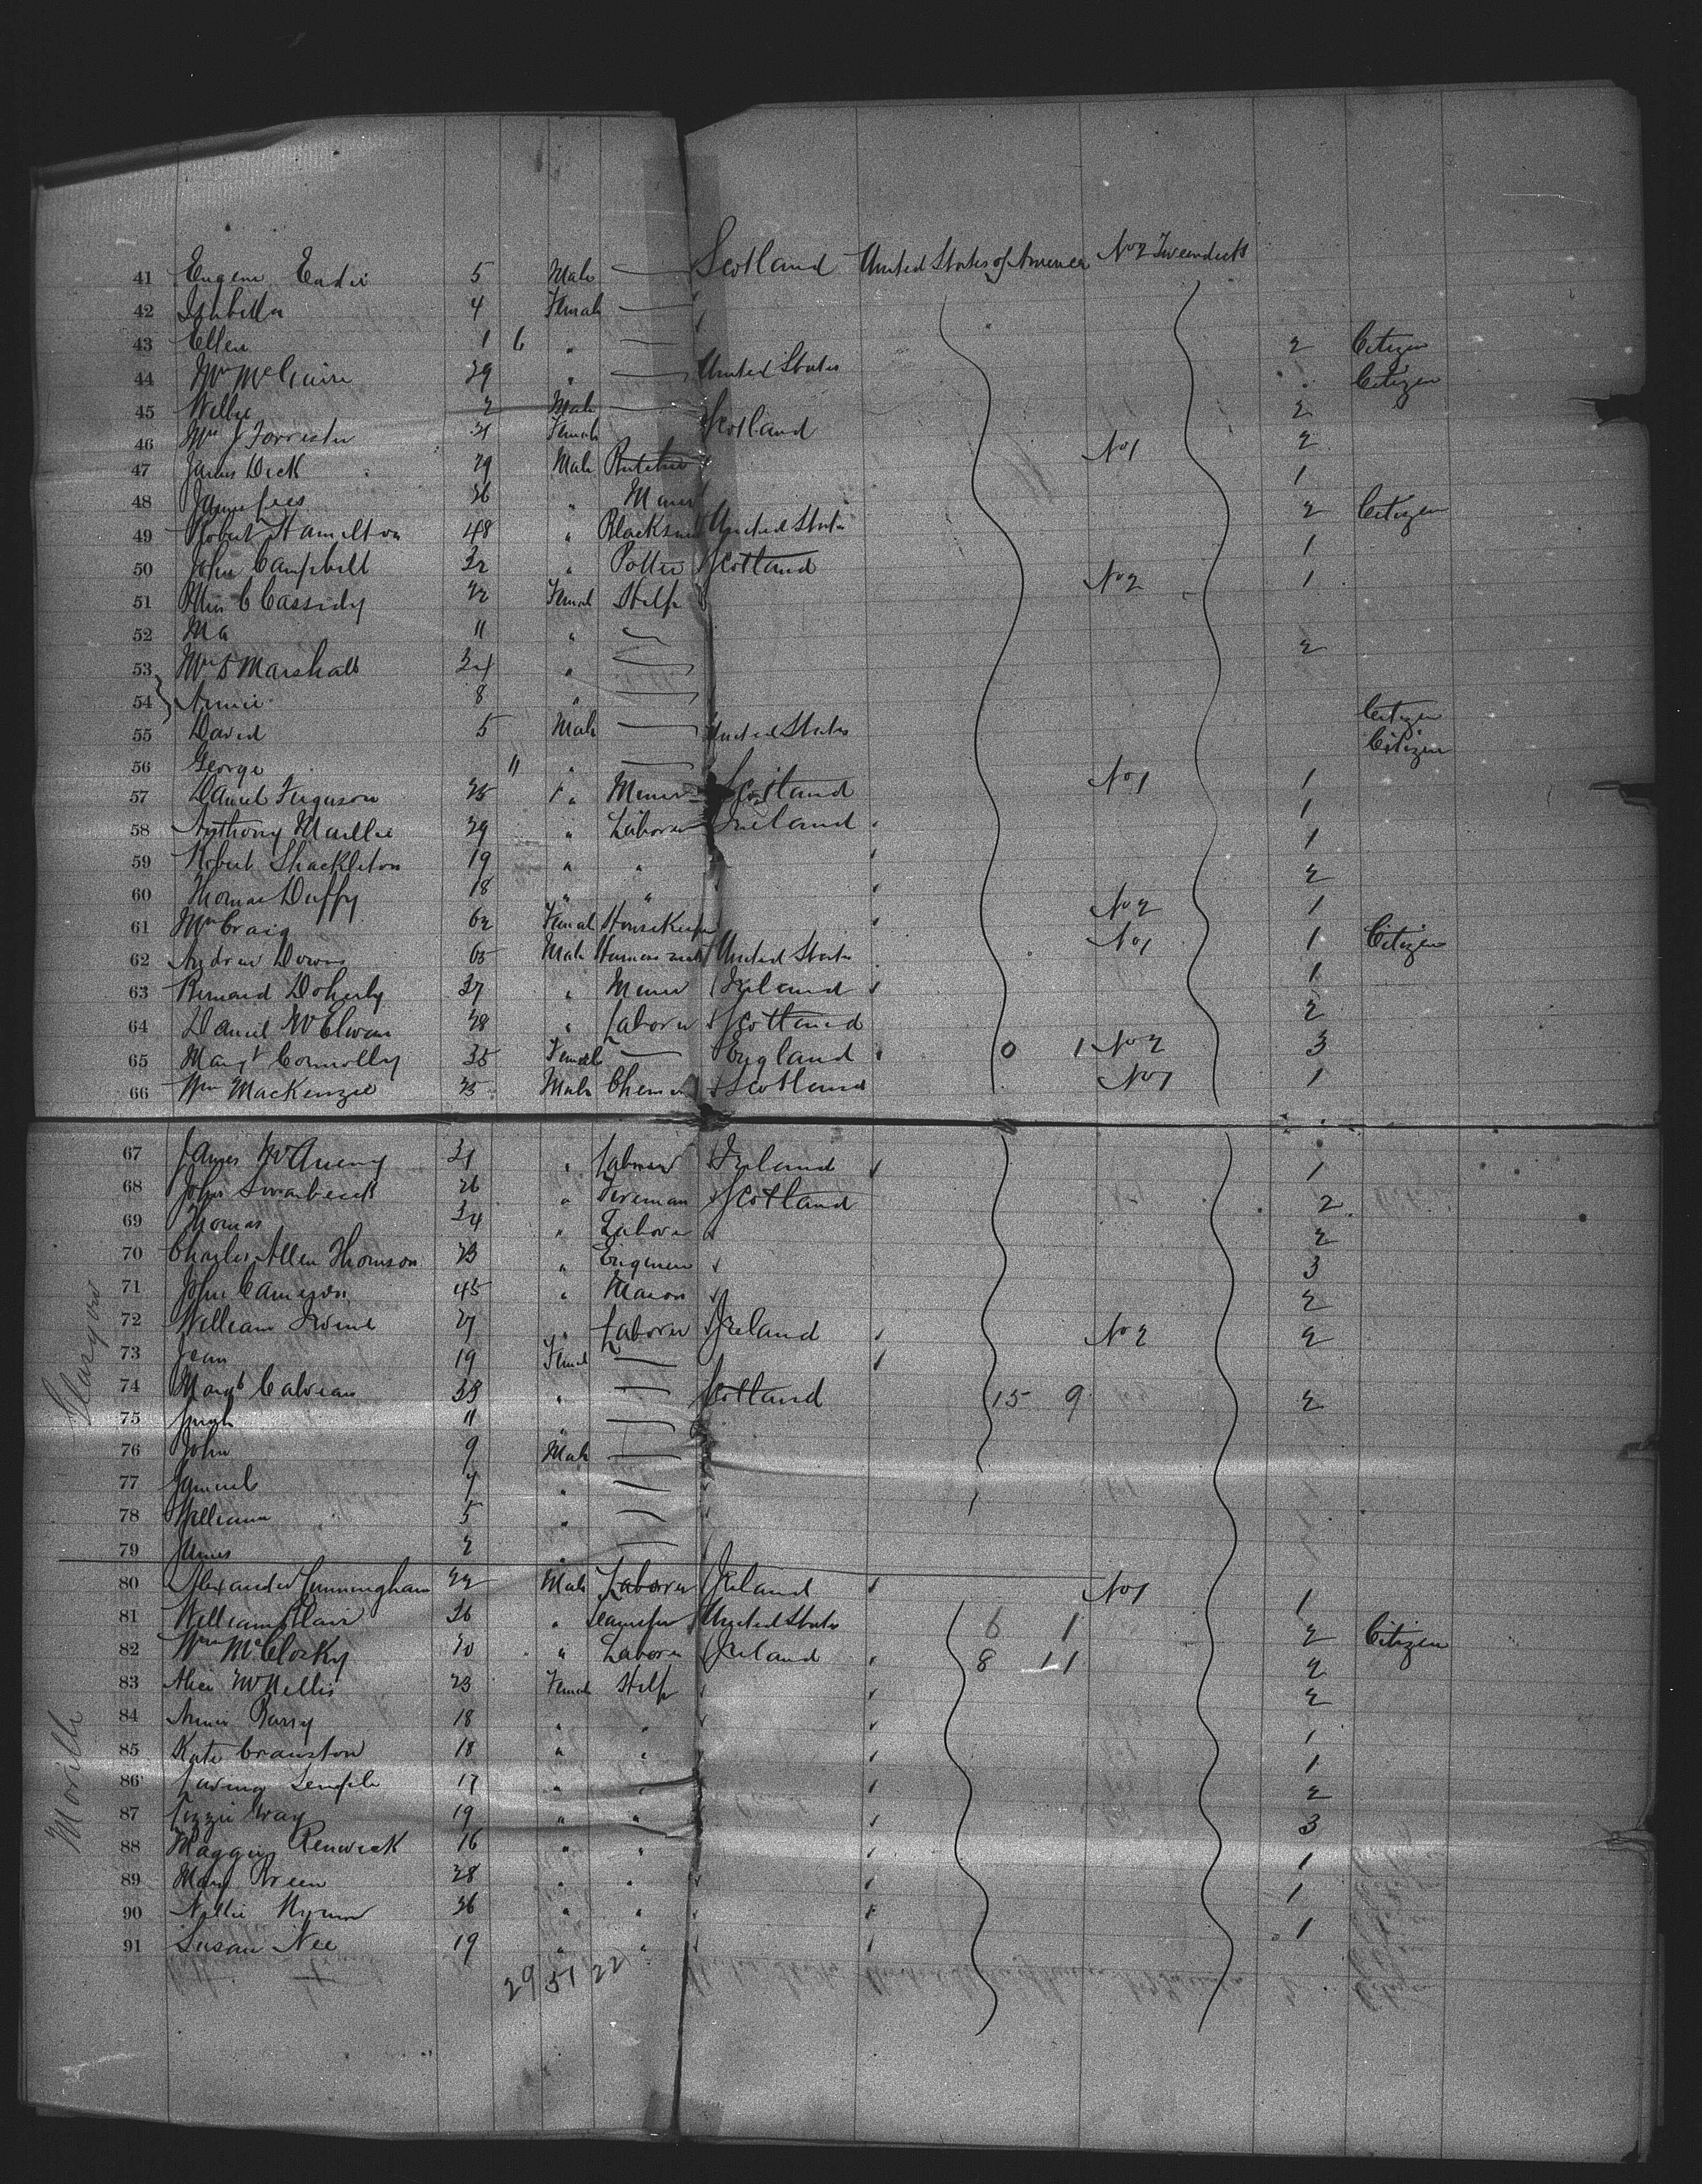 41 Eugene Eadie 5 Male — Scotland United States of America No 2 Tweendecks
42 Isabella 4 Female —
43 Ellen 1 6 " — 2 Citizen
44 Mrs McGuire 29 " — United States Citizen
45 Willie 2 Male — 2
46 Mrs J Forrester 31 Female Scotland 2
47 James Dick 29 Male Butcher No 1 1
48 James Lees 36 " Miner 2 Citizen
49 Robert Hamilton 48 " Blacksmith United States 1
50 John Campbell 32 " Potter Scotland 1
51 Miss C Cassidy 22 Female Help No 2
52 Ma 11 " 2
53 Mrs D Marshall 34 " —
54 Annie 8 " —
55 David 5 Male — United States Citizen
56 George 11 " — Citizen
57 Daniel Ferguson 25 " Miner Scotland No 1 1
58 Anthony 29 " Laborer Ireland 1
59 Robert Shackleton 19 " " 1
60 Thomas Duffy 18 " " 2
61 Mrs Craig 62 Female Housekeeper No 2 1
62 Andrew Downs 65 Male Harness United States No 1 1 Citizen
63 Bernard Doherty 37 " Miner Ireland 1
64 Daniel McElwan 28 " Laborer Scotland 2
65 Margt Connolly 35 Female — England 0 1 No 2 3
66 Wm MacKenzie 25 Male Scotland No 1 1
67 James 31 " Laborer Ireland 1
68 John 26 " Fireman Scotland 2
69 Thomas 34 " Laborer 2
70 Charles Allen Thomson 23 " Engineer 3
71 John Cameron 45 " Mason 2
72 William Irvine 27 " Laborer Ireland No 2 2
73 Jean 19 Female —
74 Margt 38 " — Scotland 15 9 2
75 11 " —
76 John 9 Male —
77 Samuel 7 " —
78 William 5 " — 1
79 James 2 " —
Glasgow
80 Alexander Cunningham 22 Male Laborer Ireland No 1 1
81 William Blair 36 " Teamster United States 6 1 2 Citizen
82 Wm McClosky 20 " Laborer Ireland 8 11 2
83 Alice McNellis 23 Female Help 2
84 Annie Parry 18 " " 1
85 Kate Cranston 18 " " 1
86 Semple 17 " " 2
87 Lizzie Gray 19 " " 3
88 Maggie Renwick 16 " " 1
89 Mary Breen 28 " " 1
90 Nellie 26 " " 1
91 Susan Nee 19 " "
Moville
29 51 22